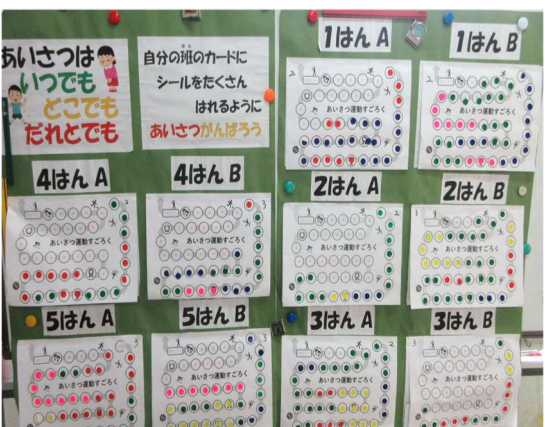 あいさつは
いつでも
どこでも
だれとでも
自分の班のカードに
シールをたくさん
はれるように
あいさつがんばろう
1はん A
1はん B
あいさつ運動すごろく
あいさつ運動すごろく
4はん A
4はん B
2はん A
2はん B
あいさつ運動すごろく
あいさつ運動すごろく
あいさつ運動すごろく
あいさつ運動すごろく
5はん A
5はん B
3はん A
3はん B
あいさつ運動すごろく
あいさつ運動すごろく
あいさつ運動すごろく
あいさつ運動すごろく